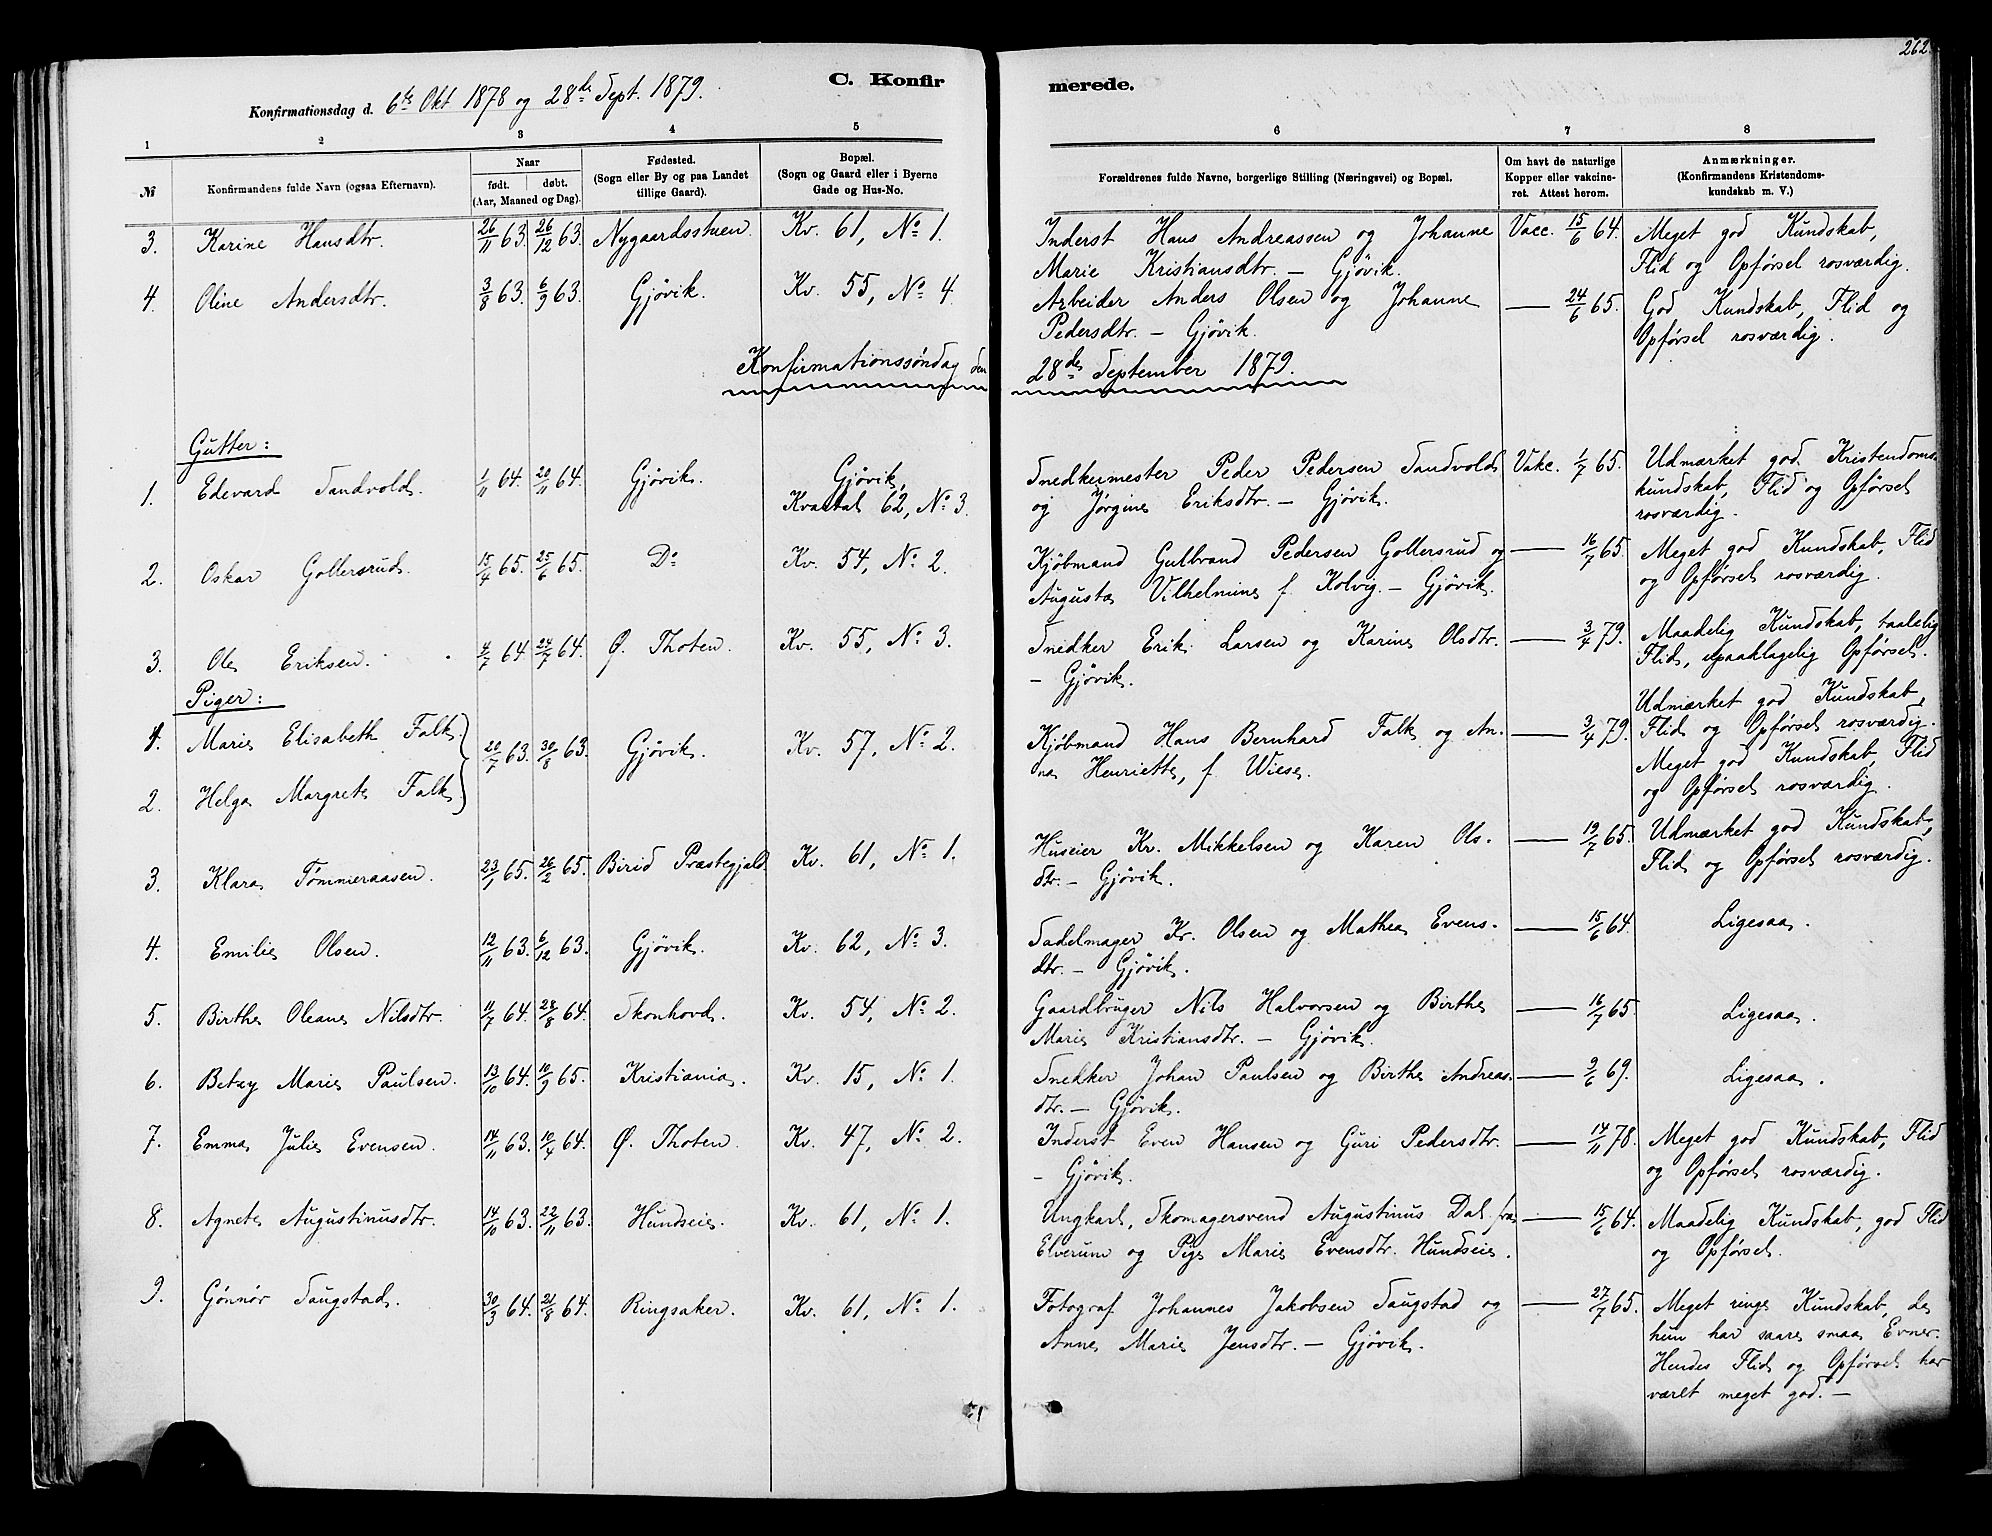 262.
C. Konfirmerede.
Konfirmationsdag d. 6te Okt 1878 og 28de Sept. 1879.
1 2 3 4 5 6 7 8
№
Konfirmandens fulde Navn (ogsaa Efternavn).
Naar
født. døbt.
(Aar, Maaned og Dag).
Fødested.
(Sogn eller By og paa Landet
tillige Gaard).
Bopæl.
(Sogn og Gaard eller i Byerne
Gade og Hus-No.
Forældrenes fulde Navne, borgerlige Stilling (Næringsvei) og Bopæl.
Om havt de naturlige
Kopper eller vakcine-
ret. Attest herom.
Anmærkninger.
(Konfirmandens Kristendoms-
kundskab m. V.)
3. Karine Hansdtr. 26/11 63. 26/12 63. Nygaardsstuen. Kv. 61, No. 1. Inderst Hans Andreassen og Johanne Vacc. 15/6 64. Meget god Kundskab,
Marie Kristiansdtr. — Gjøvik. Flid og Opførsel rosværdig.
4. Oline Andersdtr. 3/8 63. 6/9 63. Gjøvik. Kv. 55, No. 4. Arbeider Anders Olsen og Johanne — 24/6 65. God Kundskab, Flid og
Pedersdtr. — Gjøvik. Opførsel rosværdig.
Konfirmationssøndag den 28de September 1879.
Gutter:
1. Edevard Sandvold. 1/11 64. 20/11 64. Gjøvik. Gjøvik, Snedkermester Peder Pedersen Sandvold Vakc. 1/7 65. Udmærket god Kristendoms-
Kvartal 62, No. 3. og Jørgine Eriksdtr. — Gjøvik. kundskab, Flid og Opførsel
rosværdig.
2. Oskar Gollersrud. 15/4 65. 25/6 65. Do. Kv. 54, No. 2. Kjøbmand Gulbrand Pedersen Gollersrud og — 16/7 65. Meget god Kundskab, Flid
Augusta Vilhelmine f. Kolvig. — Gjøvik. og Opførsel rosværdig.
3. Ole Eriksen. 4/7 64. 24/7 64. Ø. Thoten. Kv. 55, No. 3. Snedker Erik Larsen og Karine Olsdtr. — 3/4 79. Maadelig Kundskab, taalelig
— Gjøvik. Flid, upaaklagelig Opførsel.
Piger:
1. Marie Elisabeth Falk 20/7 63. 30/8 63. Gjøvik. Kv. 57, No. 2. Kjøbmand Hans Bernhard Falk og An- — 3/4 79. Udmærket god Kundskab,
Flid og Opførsel rosværdig.
2. Helga Margrete Falk na Henriette, f. Wiese. Meget god Kundskab, Flid
og Opførsel rosværdig.
3. Klara Tømmeraasen. 23/1 65. 26/2 65. Birid Præstegjeld. Kv. 61, No. 1. Huseier Kr. Mikkelsen og Karen Ols- — 19/7 65. Udmærket god Kundskab,
dtr. — Gjøvik. Flid og Opførsel rosværdig.
4. Emilie Olsen. 12/11 63. 6/12 63. Gjøvik. Kv. 62, No. 3. Sadelmager Kr. Olsen og Mathea Evens- — 15/6 64. Ligesaa.
dtr. — Gjøvik.
5. Birthe Oleane Nilsdtr. 11/7 64. 28/8 64. Skonhovd. Kv. 54, No. 2. Gaardbruger Nils Halvorsen og Birthe — 16/7 65. Ligesaa.
Marie Kristiansdtr. — Gjøvik.
6. Betzy Marie Paulsen. 13/10 64. 10/9 65. Kristiania. Kv. 15, No. 1. Snedker Johan Paulsen og Birthe Andreas- — 9/6 69. Ligesaa.
dtr. — Gjøvik.
7. Emma Julie Evensen. 14/11 63. 10/4 64. Ø. Thoten. Kv. 47, No. 2. Inderst Even Hansen og Guri Pedersdtr. — 14/11 78. Meget god Kundskab, Flid
— Gjøvik. og Opførsel rosværdig.
8. Agnete Augustinusdtr. 14/10 63. 22/11 63. Hundseie. Kv. 61, No. 1. Ungkarl, Skomagersvend Augustinus Dal fra — 15/6 64. Maadelig Kundskab, god Flid
Elverum og Pige Marie Evensdtr. Hundseie. og Opførsel.
9. Gønnør Saugstad. 30/3 64. 21/8 64. Ringsaker. Kv. 61, No. 1. Fotograf Johannes Jakobsen Saugstad og — 27/7 65. Meget ringe Kundskab, da
Anne Marie Jensdtr. — Gjøvik. hun har saare smaa Evner.
Hendes Flid og Opførsel har
været meget god. —